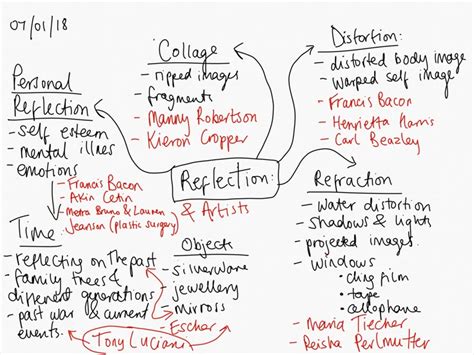 07/01/18
Collage
- ripped images
- fragments
- Manny Robertson
- Kieron Cropper
Distortion:
- distorted body image
- warped self image
- Francis Bacon
- Henrietta Harris
- Carl Beazley
Personal
Reflection
- self esteem
- mental illnes
- emotions
- Francis Bacon
- Akin Cetin
- Metra Bruno & Lauren
Jeanson (plastic surgery)
Reflection:
& Artists
Refraction
- water distortion
- shadows & lights
- projected images
- windows
• cling film
• tape
• cellophane
- Maria Tiecher
- Reisha Perlmutter
Time
- reflecting on The past
- family trees &
different generations
- past war & current
events.
Objects
- silverware
- jewellery
- mirross
- Escher
Tony Luciani